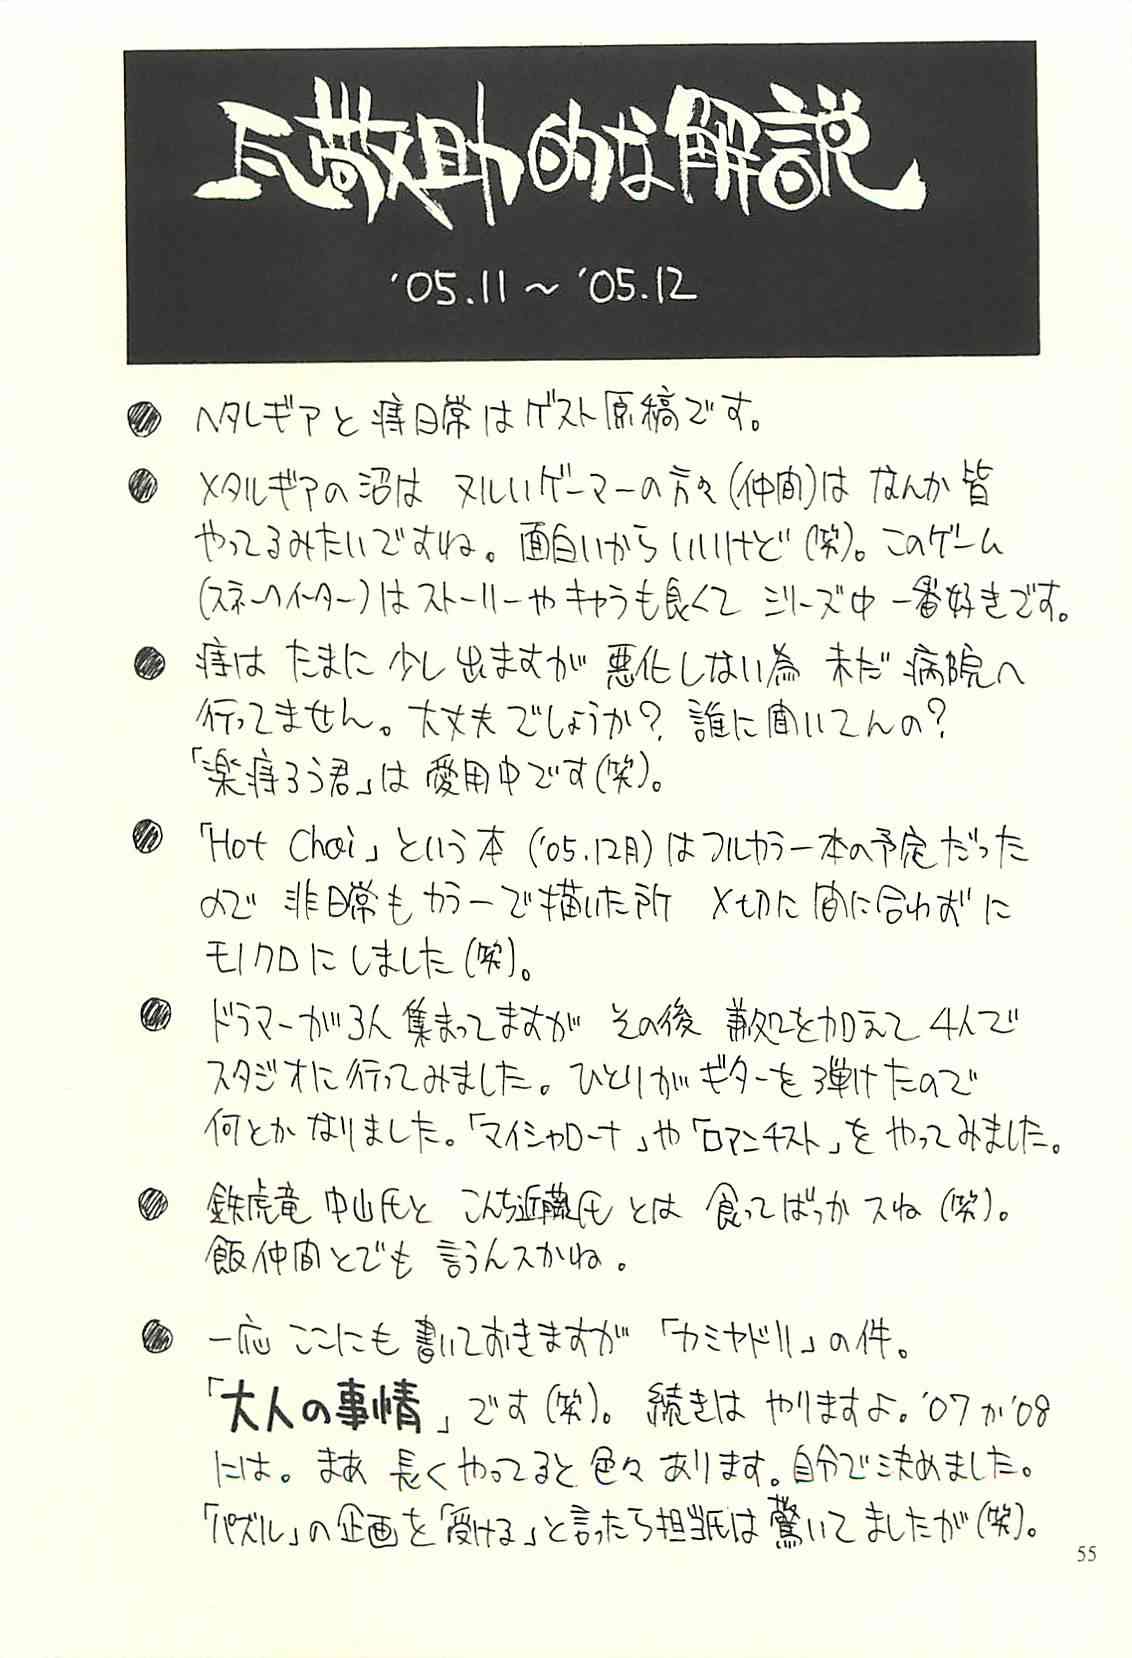 瓦敬助的な解説
'05.11～'05.12
● ヘタレギアと痔日常はゲスト原稿です。
● メタルギアの沼は ヌルいゲーマーの方々(仲間)は なんか皆
やってるみたいですね。面白いからいいけど(笑)。このゲーム
(スネークイーター)はストーリーやキャラも良くて シリーズ中 一番好きです。
● 痔は たまに 少し出ますが 悪化しない為 未だ 病院へ
行ってません。大丈夫でしょうか？ 誰に聞いてんの？
「楽痔ろう君」は 愛用中です(笑)。
● 「Hot Chai」という本 ('05.12月)はフルカラー本の予定だった
ので 非日常もカラーで描いた所 〆切に間に合わずに
モノクロにしました(笑)。
● ドラマーが3人 集まってますが その後 兼処を加えて 4人で
スタジオに行ってみました。ひとりがギターを弾けたので
何とかなりました。「マイシャローナ」や「ロマンチスト」を やってみました。
● 鉄虎竜 中山氏と こんち近藤氏とは 食ってばっかスね(笑)。
飯仲間とでも 言うんスかね。
● 一応 ここにも 書いておきますが 「カミヤドリ」の件。
「大人の事情」です(笑)。続きは やりますよ。'07か'08
には。まあ 長くやってると 色々あります。自分で決めました。
「パズル」の企画を「受ける」と言ったら担当氏は 驚いてましたが(笑)。
55